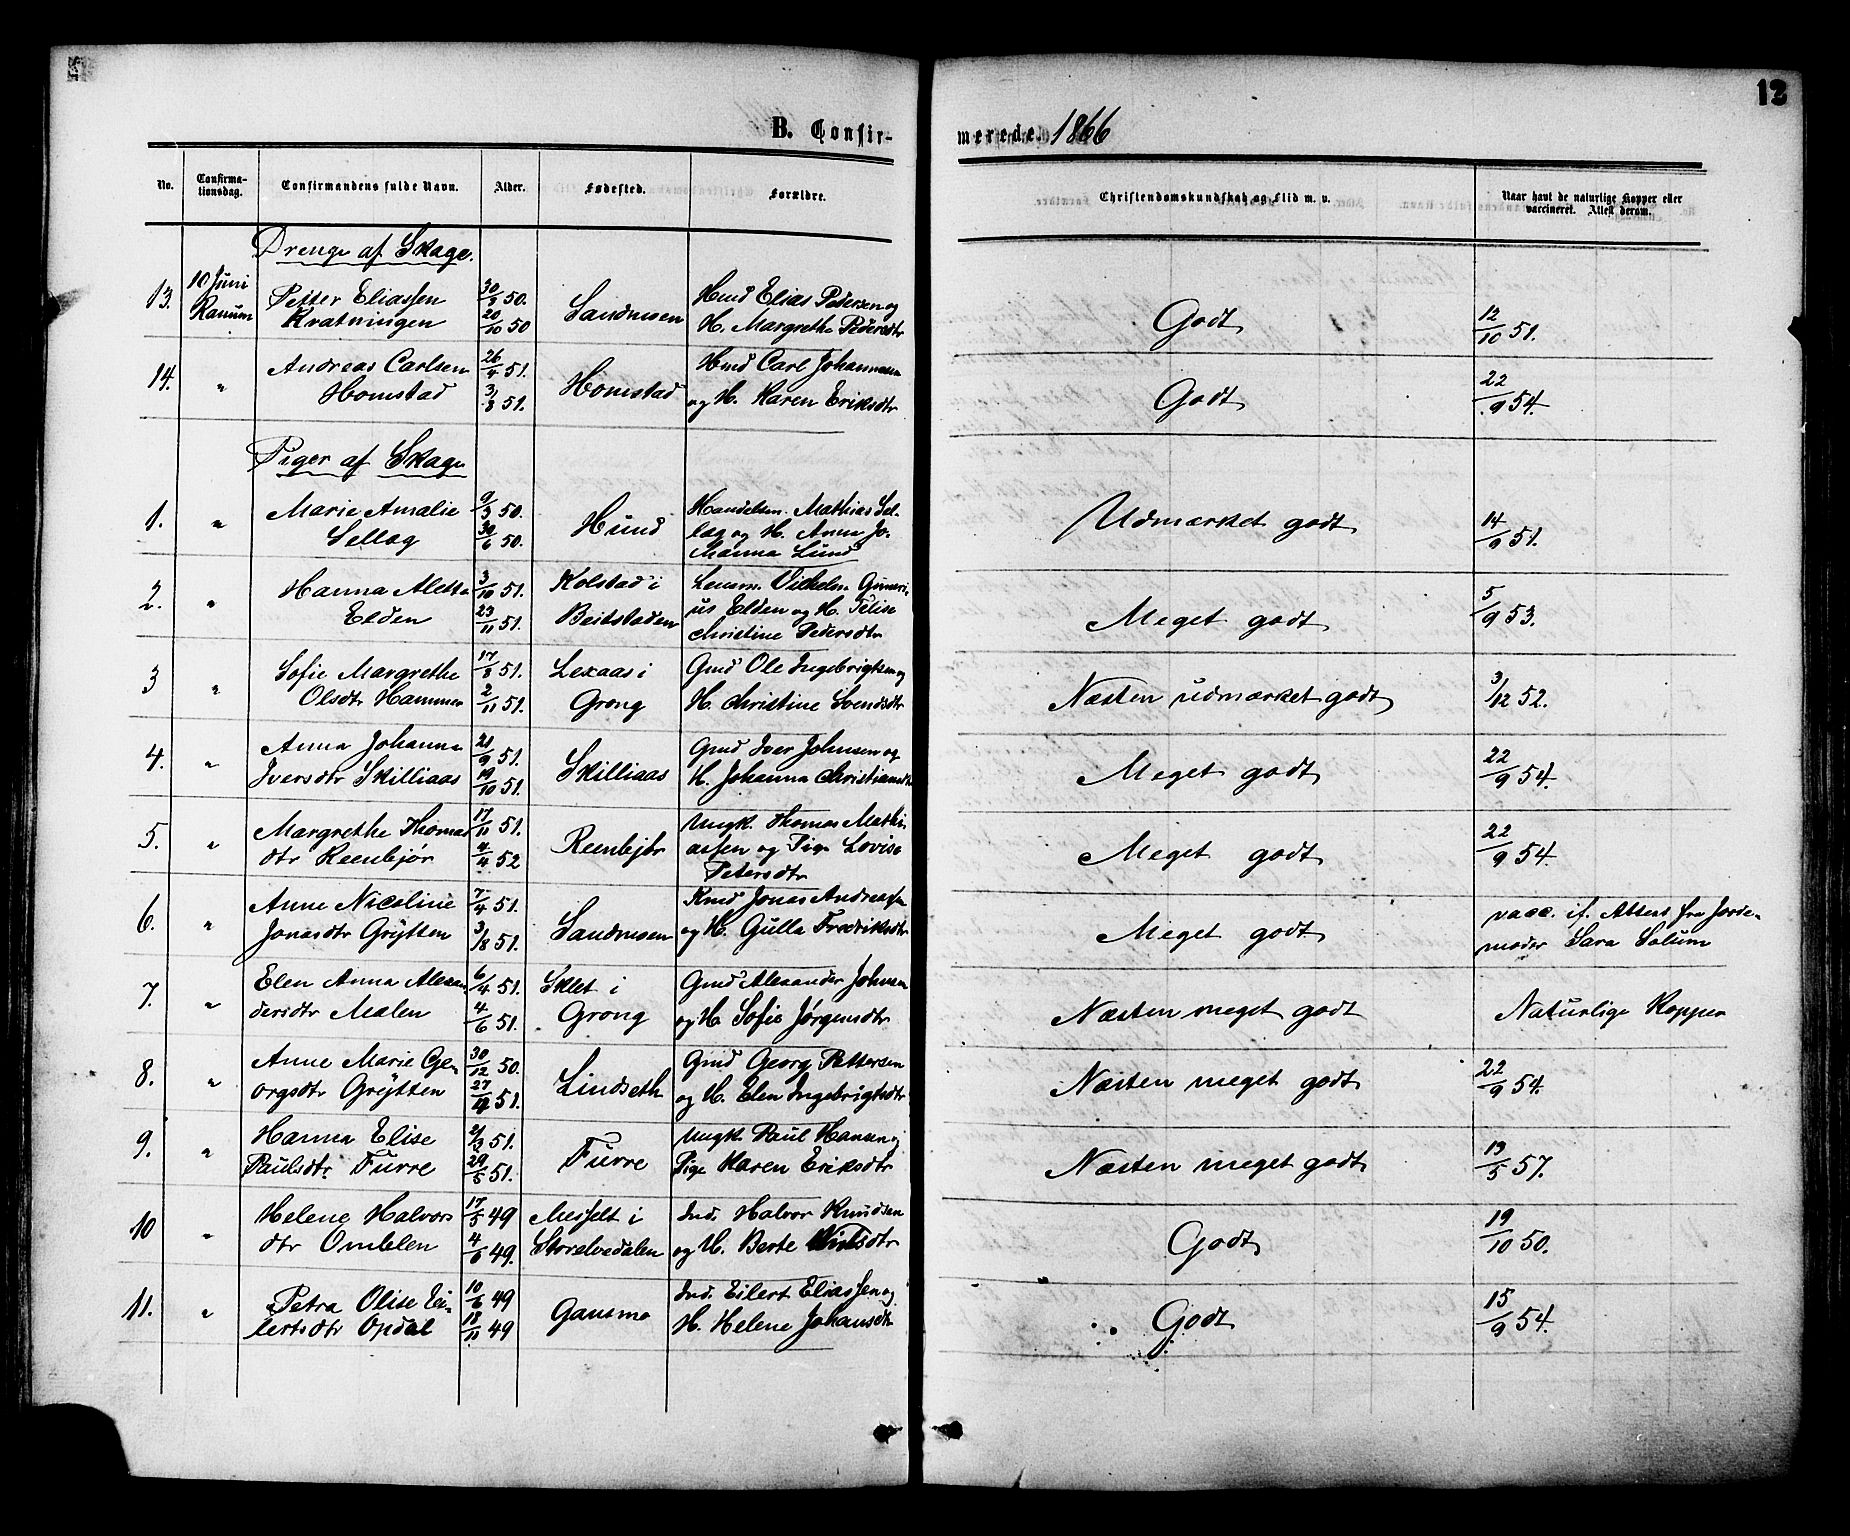 12
B. Confir-
merede. 1866
No.
Confirma-
tionsdag.
Confirmandens fulde Navn.
Alder.
Fødested.
Forældre.
Christendomskundskab og Flid m. v.
Naar havt de naturlige Kopper eller
vaccineret. Attest derom.
Drenge af Skage.
13.
10 Juni
Ranum
Petter Eliassen
Kvatningen
30/3 50.
20/10 50
Sandmoen
Hmd Elias Pedersen og
H. Margrethe Pedersdtr
Godt
12/10 51.
14.
"
Andreas Carlsen
Homstad
26/4 51.
3/8 51.
Homstad
Hmd Carl Johannesen
og H. Karen Eriksdtr
Godt
22/9 54.
Piger af Skage
1.
"
Marie Amalie
Sellæg
9/3 50.
30/6 50.
Hund
Handelsm. Mathias Sel-
læg og H. Anna Jo-
hanna Lund
Udmærket godt
14/9 51.
2.
"
Hanna Aletta
Elden
3/10 51.
23/11 51.
Kolstad i
Beitstaden
Lensm. Vilhelm Guneri-
us Elden og H. Felise
Christine Pedersdtr
Meget godt
5/9 53.
3
"
Sofie Margrethe
Olsdtr Hammer
17/8 51.
2/11 51.
Lexaas i
Grong
Gmd Ole Ingebrigtsen og
H. Christine Svendsdtr
Næsten udmærket godt
3/12 52.
4.
"
Anna Johanna
Iversdtr Skilliaas
21/9 51.
19/10 51.
Skilliaas
Gmd Iver Johnsen og
H. Johanna Christiansdtr
Meget godt
22/9 54.
5.
"
Margrethe Thomas
dtr Reenbjør
17/11 51.
4/4 52
Reenbjør
Ungk. Thomas Mathi
assen og Pige Lovise
Petersdtr
Meget godt
22/9 54.
6.
"
Anne Nicoline
Jonasdtr Grÿtten
7/4 51.
3/8 51.
Sandmoen
Hmd Jonas Andreassen
og H. Gulla Fredriksdtr
Meget godt
vacc. if. Attest fra Jorde-
moder Sara Solum
7.
"
Elen Anna Alexan
dersdtr Mælen
6/4 51.
4/6 51.
Sklet i
Grong
Gmd Alexander Johnsen
og H. Sofie Jørgensdtr
Næsten meget godt
Naturlige Kopper
8.
"
Anne Marie Ge-
orgsdtr Grÿtten
30/12 50.
27/4 51.
Lindseth
Gmd Georg Pettersen
og H. Elen Ingebrigtsdtr
Næsten meget godt
22/9 54.
9.
"
Hanna Elise
Paulsdtr Furre
21/3 51.
29/5 51.
Furre
Ungk. Paul Hansen og
Pige Karen Eriksdtr
Næsten meget godt
13/5 57.
10
"
Helene Halvors
dtr Omblen
17/5 49
4/6 49.
Messelt i
Storelvedalen
Ind. Halvor Knudsen
og H. Berte
Godt
19/10 50.
11.
"
Petra Olise Ei-
lertsdtr Opdal
10/6 49
18/11 49
Gansmo
Ind. Eilert Eliassen og
H. Helene Johansdtr
Godt
15/9 54.